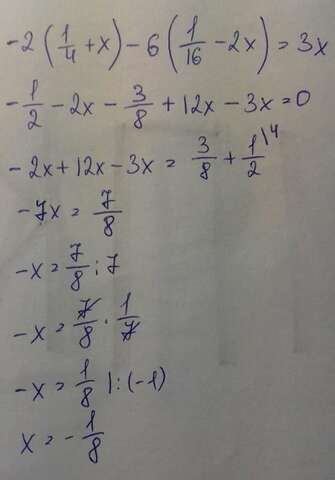 -2(1/4+x)-6(1/16-2x)=3x
-1/2-2x-3/8+12x-3x=0
-2x+12x-3x=3/8+1/2\4
-7x=7/8
-x=7/8:7
-x=7/8·1/7
-x=1/8 |:(-1)
x=-1/8